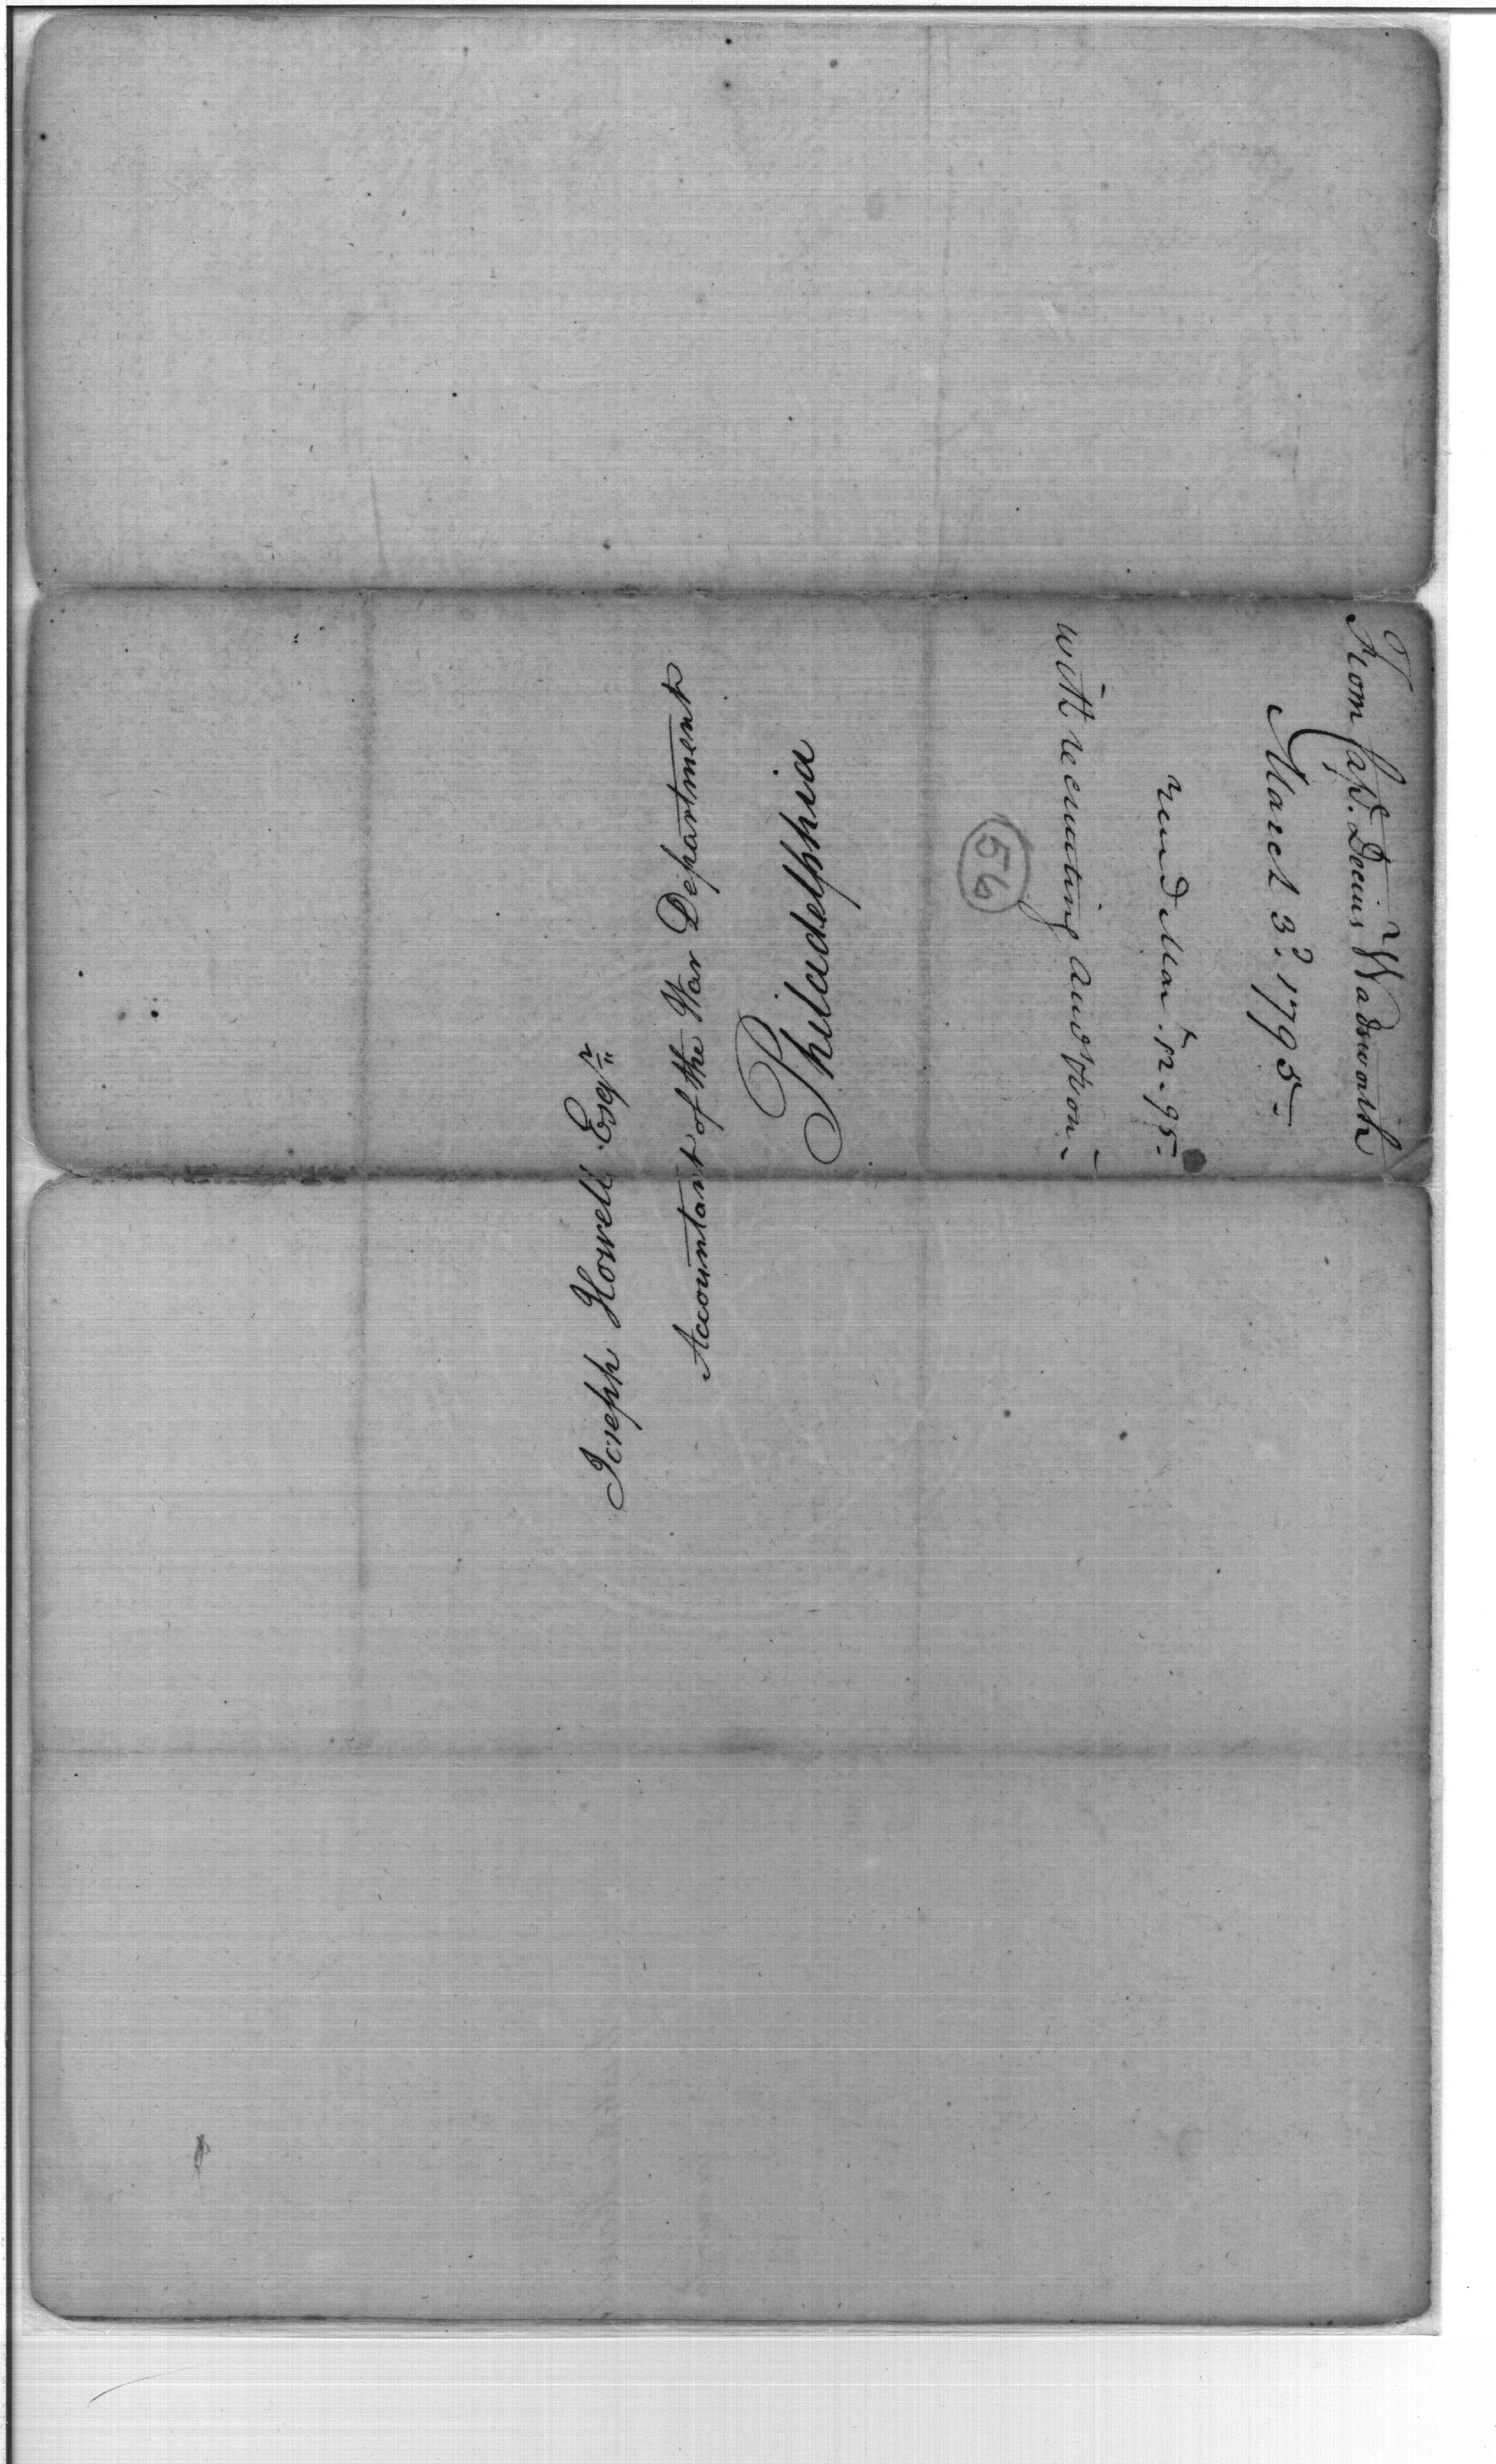 Joseph Howell Esqr
Accountant of the War Department
Philadelphia
From Capt. Decius Wadsworth
March 3d. 1795
Mar. 12. 95
with recruiting
56